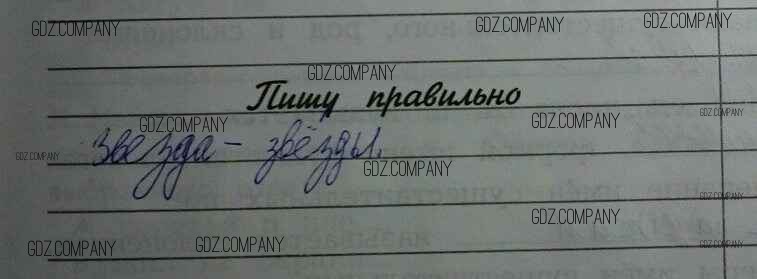 GDZ.COMPANY GDZ.COMPANY GDZ.COMPANY
GDZ.COMPANY
Пишу правильно
GDZ.COMPANY GDZ.COMPANY GDZ.COMPANY
звезда – звёзды.
GDZ.COMPANY
GDZ.COMPANY
GDZ.COMPANY
GDZ.COMPANY GDZ.COMPANY GDZ.COMPANY